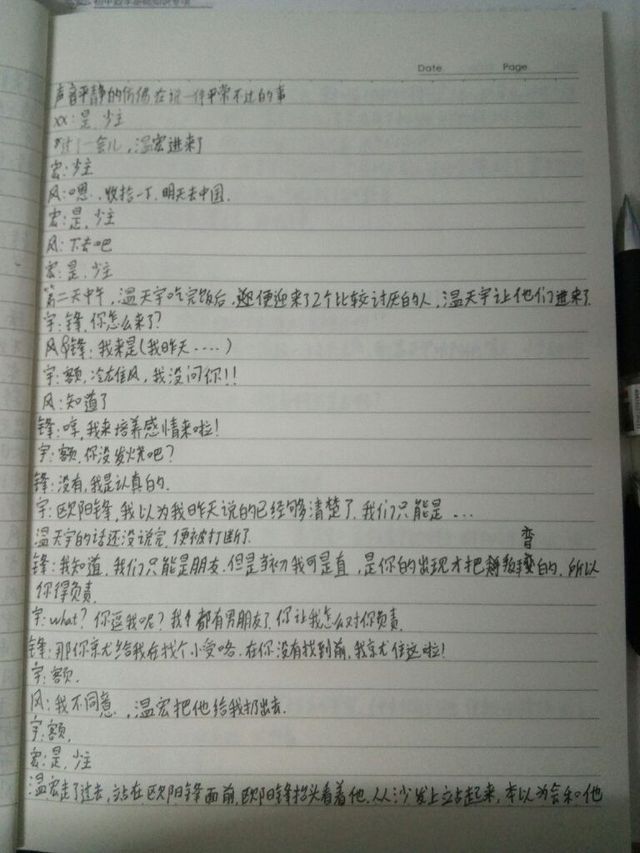 初中数学基础知识专项
Date.　Page
声音平静的仿佛在说一件平常不过的事
xx:是,少主
过了一会儿,温宏进来了
宏:少主
风:嗯,收拾一下,明天去中国.
宏:是,少主
风:下去吧
宏:是,少主
第二天中午,温天宇吃完饭后,便迎来了2个比较讨厌的人,温天宇让他们进来了
宇:锋,你怎么来了?
风&锋:我来是(我昨天····)
宇:额,冷左佳风,我没问你!!
风:知道了
锋:哼,我来培养感情来啦!
宇:额,你没发烧吧?
锋:没有,我是认真的.
宇:欧阳锋,我以为我昨天说的已经够清楚了,我们只能是···
温天宇的话还没说完,便被打断了.
锋:我知道,我们只能是朋友.但是当初我可是直,是你的出现才把我掰弯的,所以
你得负责.
宇:what?你逗我呢?我都有男朋友了,你让我怎么对你负责.
锋:那你就给我在找个小受咯,在你没有找到前,我就住这啦!
宇:额.
风:我不同意,温宏把他给我扔出去.
宇:额,
宏:是,少主
温宏走了过去,站在欧阳锋面前,欧阳锋抬头看着他,从沙发上站起来,本以为会和他